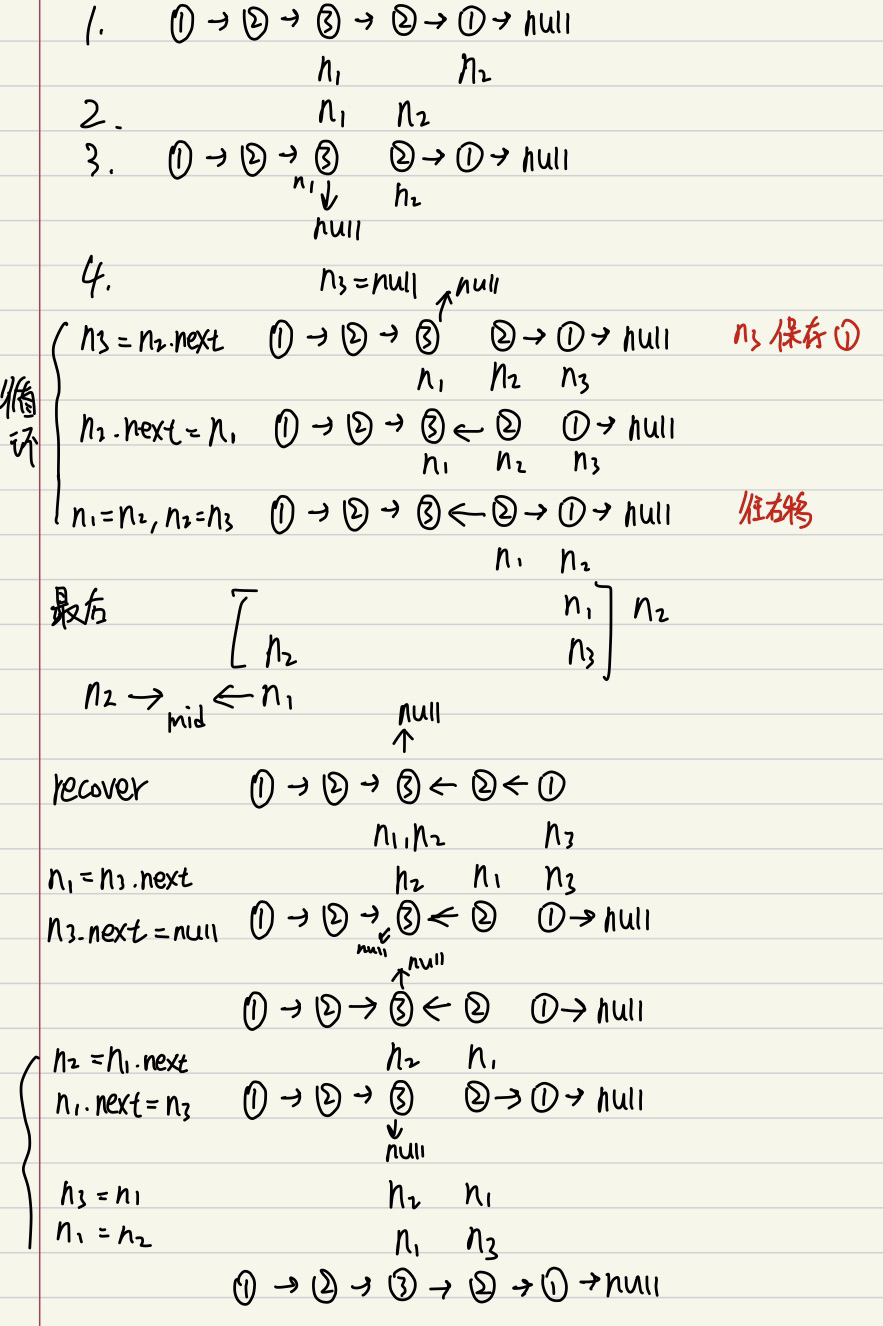 1. ① → ② → ③ → ② → ① → null
n₁ n₂
2. n₁ n₂
3. ① → ② → ③ ② → ① → null
n₁ ↓ n₂
null
4. n₃ = null ↗ null
n₃ = n₂.next ① → ② → ③ ② → ① → null n₃ 保存 ①
n₁ n₂ n₃
循环
n₂.next = n₁ ① → ② → ③ ← ② ① → null
n₁ n₂ n₃
n₁ = n₂, n₂ = n₃ ① → ② → ③ ← ② → ① → null 往右移
n₁ n₂
最后 [ n₁ ] n₂
n₂ n₃
n₂ → mid ← n₁
null
↑
recover ① → ② → ③ ← ② ← ①
n₁, n₂ n₃
n₁ = n₃.next n₂ n₁ n₃
n₃.next = null ① → ② → ③ ← ② ① → null
↙ null
↑ null
① → ② → ③ ← ② ① → null
n₂ = n₁.next n₂ n₁
n₁.next = n₃ ① → ② → ③ ② → ① → null
↓
null
n₃ = n₁ n₂ n₁
n₁ = n₂ n₁ n₃
① → ② → ③ → ② → ① → null